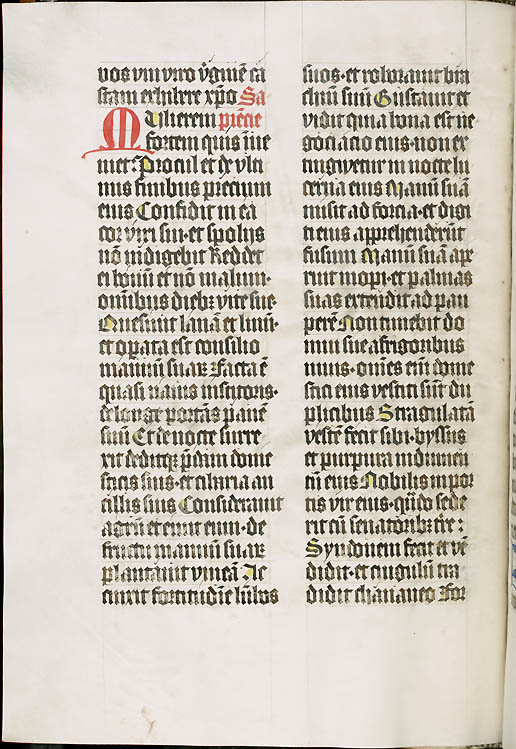 vos vni viro v̾ginē ca
stam exhibere xp̄o Sa-
Mulierem p̄ecie
fortem quis īue
niet: Procul et de vlti
mis finibus precium
eius Confidit in ea
cor viri sui· et spolijs
nō indigebit Reddet
ei bonū et nō malum·
omībus diebꝫ vite sue
Quesiuit lanā et linū·
et operata est consilio
manuū suaꝝ Facta ē
quasi nauis institoris·
de longe portās panē
suū Et de nocte surre
xit deditqꝫ p̄dam dome
sticis suis· et cibaria an
cillis suis Considerauit
agrū et emit eum· de
fructu manuū suaꝝ
plantauit vineā Ac
cinxit fortitudīe lūbos
suos· et roborauit bra
chiū suū Gustauit et
vidit quia bona est ne
gociacio eius· non ex
tinguetur in nocte lu
cerna eius Manū suā
misit ad forcia· et digi
ti eius apprehenderūt
fusum Manū suā ape
ruit inopi· et palmas
suas extendit ad pau
perē Non timebit do
mui sue a frigoribus
niuis· om̄es em̄ dome
stici eius vestiti sūt du
plicibus Stragulatā
vestē fecit sibi· byssus
et purpura indumen
tū eius Nobilis in por
tis vir eius· qn̄do sede
rit cū senatoribꝫ tr̄e:
Syndonem fecit et vē
didit· et cingulū tra
didit chananeo For